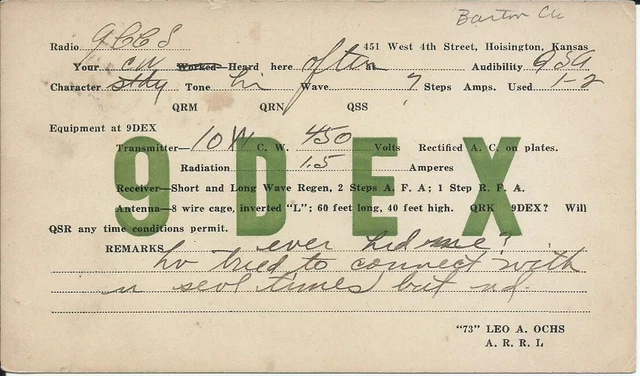 Barton Co
Radio 9CCS 451 West 4th Street, Hoisington, Kansas
Your CW Worked Heard here often at Audibility QSA
Character stdy Tone hi Wave Steps Amps. Used 1-2
QRM QRN QSS
Equipment at 9DEX
Transmitter—10 W C. W. 450 Volts Rectified A. C. on plates.
Radiation 1.5 Amperes
9DEX
Receiver—Short and Long Wave Regen, 2 Steps A. F. A; 1 Step R. F. A.
Antenna—8 wire cage, inverted "L"; 60 feet long, 40 feet high. QRK 9DEX? Will
QSR any time conditions permit.
REMARKS ever hd me?
hv tried to connect with
u sevl times but nd.
"73" LEO A. OCHS
A. R. R. L